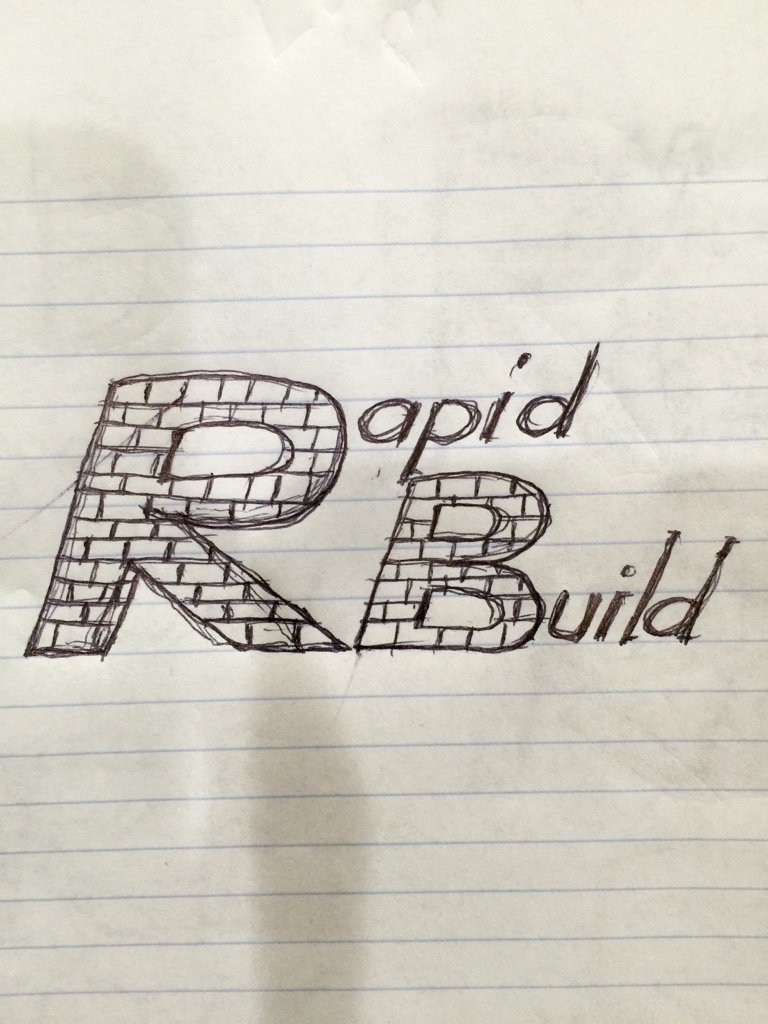 Rapid
Build